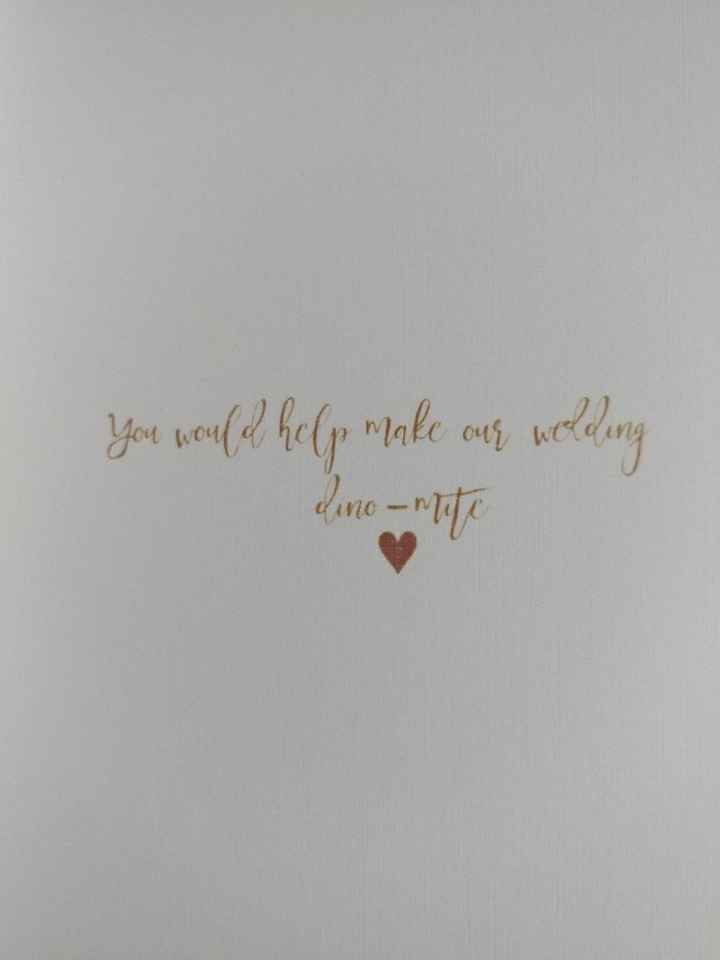 You would help make our wedding
dino-mite